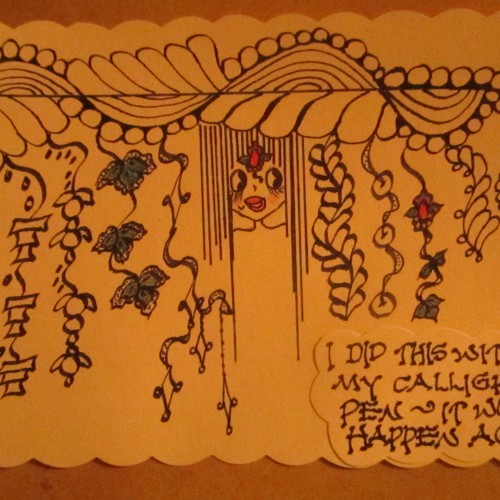 I DID THIS WIT
MY CALLIG
PEN ~ IT W
HAPPEN AG